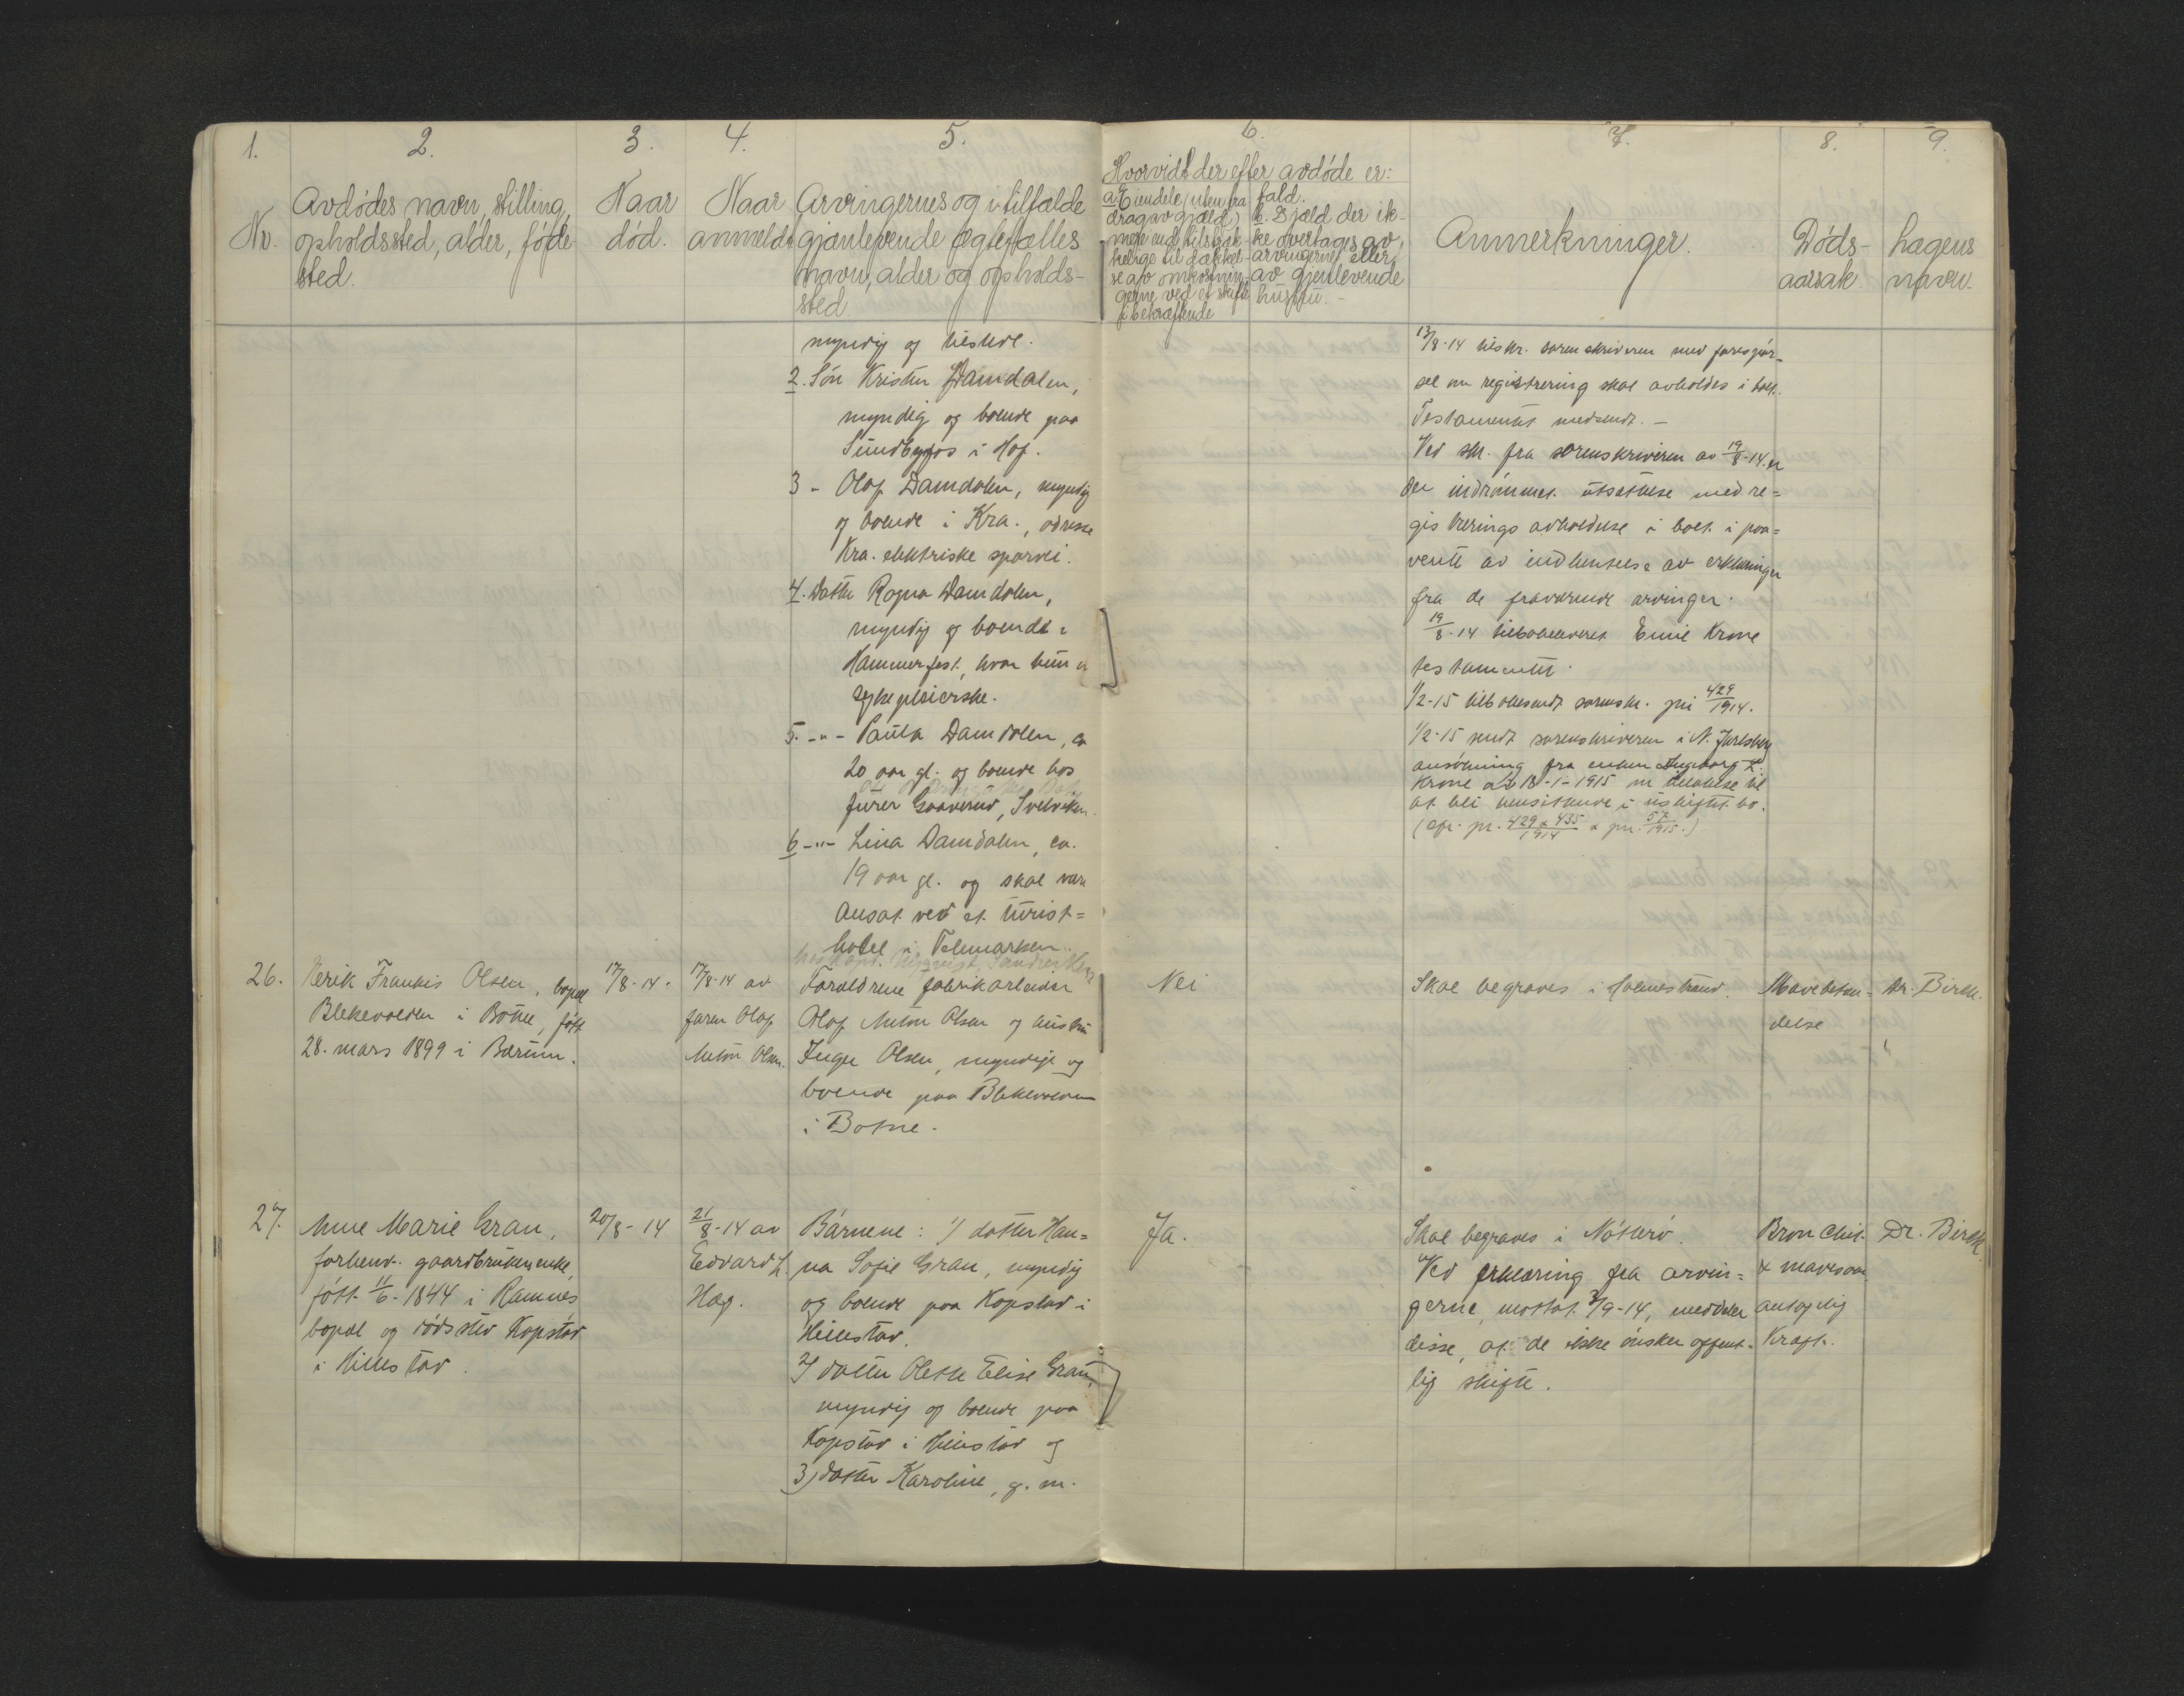 1.
2.
3.
4.
5.
6.
7.
8.
9.
Nr.
Avdødes navn, stilling,
opholdssted, alder, føde-
sted.
Naar
død.
Naar
anmeldt
Arvingernes og i tilfælde
gjenlevende ægtefælles
navn, alder og opholds-
sted.
Hvorvidt der efter avdøde er:
a. Eiendele (uten fra-
drag av gjæld)
mere end tilstræk-
kelige til dækkel-
se av omkostnin-
gerne ved et skifte
i bekræftende
fald.
b. Gjæld der ik-
ke overtages av
arvingerne eller
av gjenlevende
hustru.-
Anmerkninger.
Døds-
aarsak.
Lægens
navn.
myndig og tilstede.
2. Søn Kristen Damdalen,
myndig og boende paa
Sundbyfos i Hof.
3 - Olaf Damdalen, myndig
og boende i Kra., adresse
Kra. elektriske sporvei.
4. Datter Ragna Damdalen,
myndig og boende i
Hammerfest, hvor hun er
sykepleierske.
5. -"- Paula Damdalen, ca
20 aar gl. og boende hos
fürer Graverud, Svelviken.
6 -"- Lina Damdalen, ca.
19 aar gl. og skal være
ansat ved et turist=
hotel i Telemarken.
13/8-14 tilskr. sorenskriveren med forespør-
sel om registrering skal avholdes i boet.
Testamentet medsendt. -
Ved skr. fra sorenskriveren av 19/8-14 er
der indrømmet utsættelse med re=
gistrerings avholdelse i boet i paa=
vente av indhentelse av erklæringer
fra de fraværende arvinger.
19/8-14 tilbakeleveret Emil Krone
testamentet.
1/2-15 tilbakesendt sorenskr. pri 429/1914.
1/2-15 sendt sorenskriveren i N. Jarlsberg
ansøkning fra enken Ingeborg
Krone av 18-1-1915 om tilladelse til
at bli hensittende i uskiftet bo.
(cfr. pr. 429 & 435/1914 & pri 57/1915.)
26.
Henrik Frankis Olsen, bopæl
Blekevolden i Botne, født
28. mars 1899 i Bærum.
17/8-14.
17/8-14 av
faren Olaf
Anton Olsen.
Forældrene fabrikarbeider
Olaf Anton Olsen og hustru
Inger Olsen, myndige og
boende paa Blekevolden
i Botne.
Nei
Skal begraves i Holmestrand.
Mavebeten-
delse
Dr. Birck.
27.
Anne Marie Gran,
forhenv. gaardbrukerenke,
født 11/6-1844 i Ramnes,
bopæl og dødssted Kopstad
i Hillestad.
20/8-14
21/8-14 av
Edvard L.
Hag.
Barnene: 1/ datter Han=
na Sofie Gran, myndig
og boende paa Kopstad i
Hillestad.
2/ datter Olette Elise Gran,
myndig og boende paa
Kopstad i Hillestad og
3) datter Karoline, g. m.
Ja.
Skal begraves i Nøtterø.
Ved erklæring fra arvin=
gerne, mottat 3/9-14, meddeler
disse, at de ikke ønsker offent-
lig skifte.
Bronchit.
& mavesaar
antagelig
Kræft.
Dr. Birck